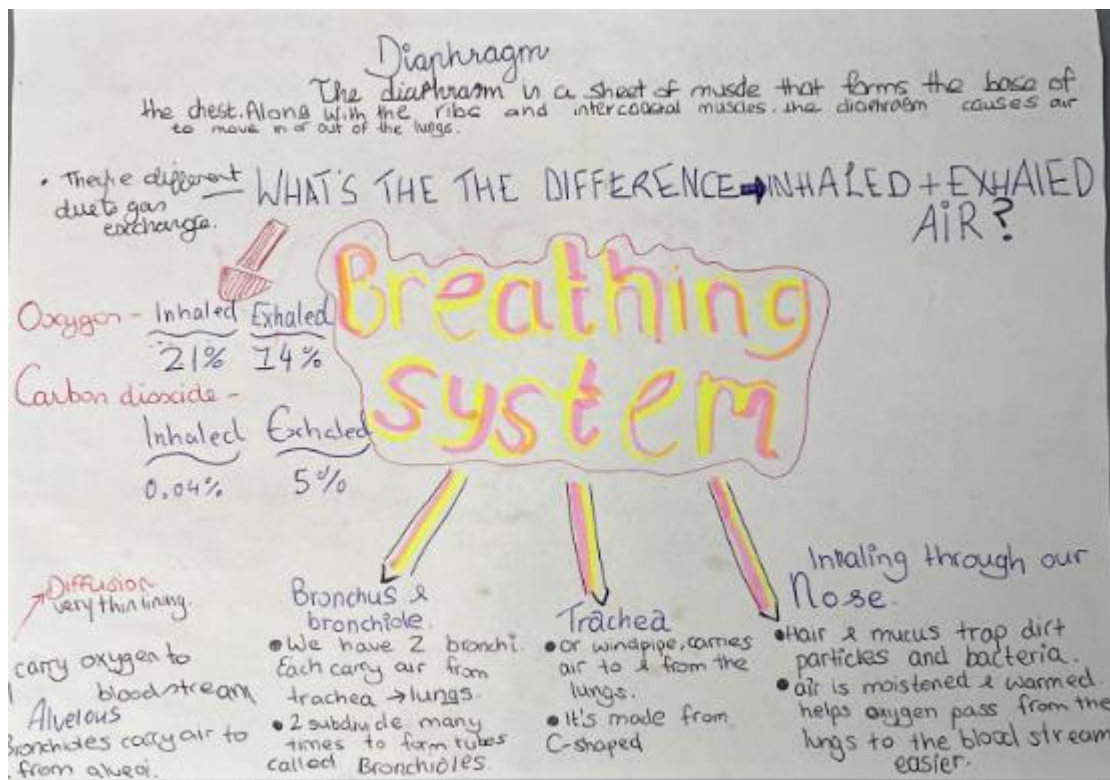 Diaphragm
The diaphragm is a sheet of muscle that forms the base of
the chest. Along with the ribs and intercoastal muscles. the diaphragm causes air
to move in or out of the lungs.
• They're different
due to gas
exchange.
WHAT'S THE THE DIFFERENCE ➡ INHALED + EXHALED
AIR?
Oxygen - Inhaled Exhaled
21% 14%
Carbon dioxide -
Inhaled Exhaled
0.04% 5%
Breathing
system
Diffusion
very thin lining.
carry oxygen to
bloodstream
Alvelous
Bronchioles carry air to
from alveoi.
Bronchus &
bronchiole.
• We have 2 bronchi.
Each carry air from
trachea → lungs.
• 2 subdivide many
times to form tubes
called Bronchioles.
Trachea
• or windpipe, carries
air to & from the
lungs.
• It's made from
C-shaped
Inhaling through our
Nose.
• Hair & mucus trap dirt
particles and bacteria.
• air is moistened & warmed.
helps oxygen pass from the
lungs to the blood stream
easier.